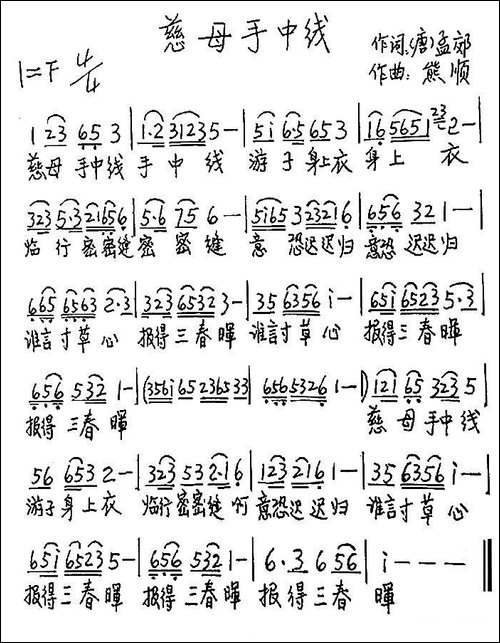 慈母手中线
作词:(唐)孟郊
1=F 4/4
作曲:熊顺
1 23 65 3 | 1·2 31235— | 5i 65 653 | 165651 23 2—|
慈母 手中线 手 中 线 游 子 身上衣 身上 衣
323 5·3 21656 | 5·6 75 6— | 5i65 323216 | 656 321— |
临 行 密密缝 密 密 缝 意 恐迟迟归 意恐 迟迟归
665 6563 2·3 | 323 65323— | 35 6356 i— | 65i 6523 5·3 |
谁言寸草心 报得三春暉 谁言寸草心 报得三春暉
656 532 1— | (356i 65 236533 | 656 5326 1—) | 121 65 323 5 |
报得三春暉 慈母手中线
56 653 2— | 323 532·16 | 123 2161— | 35 6356 i— |
游子身上衣 临行密密缝 呵 意恐迟迟归 谁言寸草心
65i 6523 5— | 656 532 1— | 6·3 6 56 | i——— ‖
报得三春暉 报得三春暉 报得三春 暉